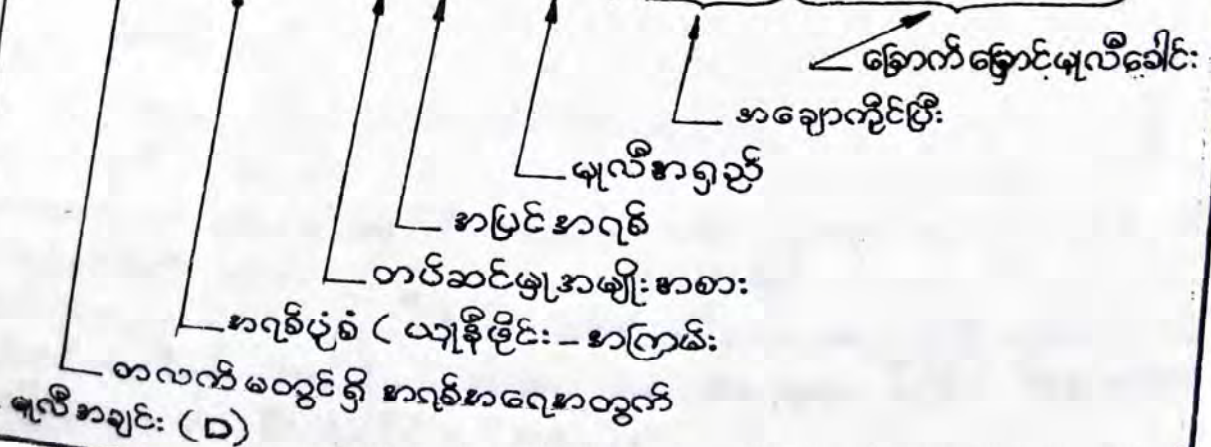 ခြောက်မြှောင့်မူလီခေါင်း
အချောကိုင်ပြီး
မူလီအရှည်
အပြင်အရစ်
တပ်ဆင်မှုအမျိုးအစား
အရစ်ပုံစံ ( ယူနီဖိုင်း - အကြမ်း
တလက်မတွင်ရှိ အရစ်အရေအတွက်
မူလီအချင်း (D)